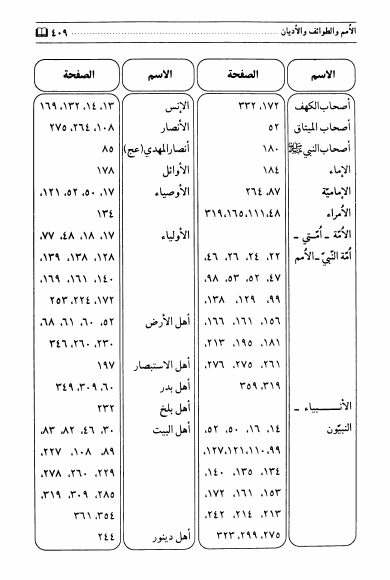 الأمم والطوائف والأديان ........ ٤٠٩
الاسم الصفحة
أصحاب الكهف ١٧٢، ٣٣٢
أصحاب الميثاق ٥٢
أصحاب النبي ﷺ ١٨٠
الإماء ١٨٤
الإماميّة ٨٧، ٢٦٤
الأمراء ٤٨، ١١١، ١٦٥، ٣١٩
الأمّة ـ أمّتي ـ
أمّة النّبيّ ـ الأمم ٢٢، ٢٤، ٢٦، ٤٦،
٤٧، ٥٢، ٥٣، ٩٨،
٩٩، ١٢٩، ١٣٨،
١٥٦، ١٦١، ١٦٦،
١٨١، ١٩٥، ٢١٣،
٢٦١، ٢٧٥، ٢٧٦،
٣١٩، ٣٥٩
الأنـبـياء ـ
النبيّون ١٤، ١٦، ٥٠، ٥٢،
٩٩، ١١٠، ١٢١، ١٢٧،
١٣٤، ١٣٥، ١٤٠،
١٥٣، ١٦١، ١٧٢،
٢١٣، ٢١٤، ٢٤٢،
٢٧٥، ٢٩٩، ٣٢٣
الاسم الصفحة
الإنس ١٣، ١٤، ١٣٢، ١٦٩
الأنصار ١٠٨، ٢٦٤، ٢٧٥
أنصار المهدي (عج) ٨٥
الأوائل ١٧٨
الأوصياء ١٧، ٥٠، ٥٢، ١٢١،
١٣٤
الأولياء ١٧، ١٨، ٤٨، ٧٧،
١٢٨، ١٣٨، ١٣٩،
١٤٠، ١٦١، ١٦٩،
١٧٢، ٢٢٤، ٢٥٣
أهل الأرض ٥٢، ٦٠، ٦١، ٦٨،
٢٣٠، ٢٦٠، ٣٤٦
أهل الاستبصار ١٩٧
أهل بدر ٦٠، ٣٠٩، ٣٤٩
أهل بلخ ٢٣٢
أهل البيت ٣٠، ٤٦، ٨٢، ٨٣،
٨٩، ١٠٨، ٢٢٧،
٢٢٩، ٢٦٠، ٢٧٨،
٢٨٥، ٣٠٩، ٣١٩،
٣٥٤، ٣٦١
أهل دينور ٢٤٤